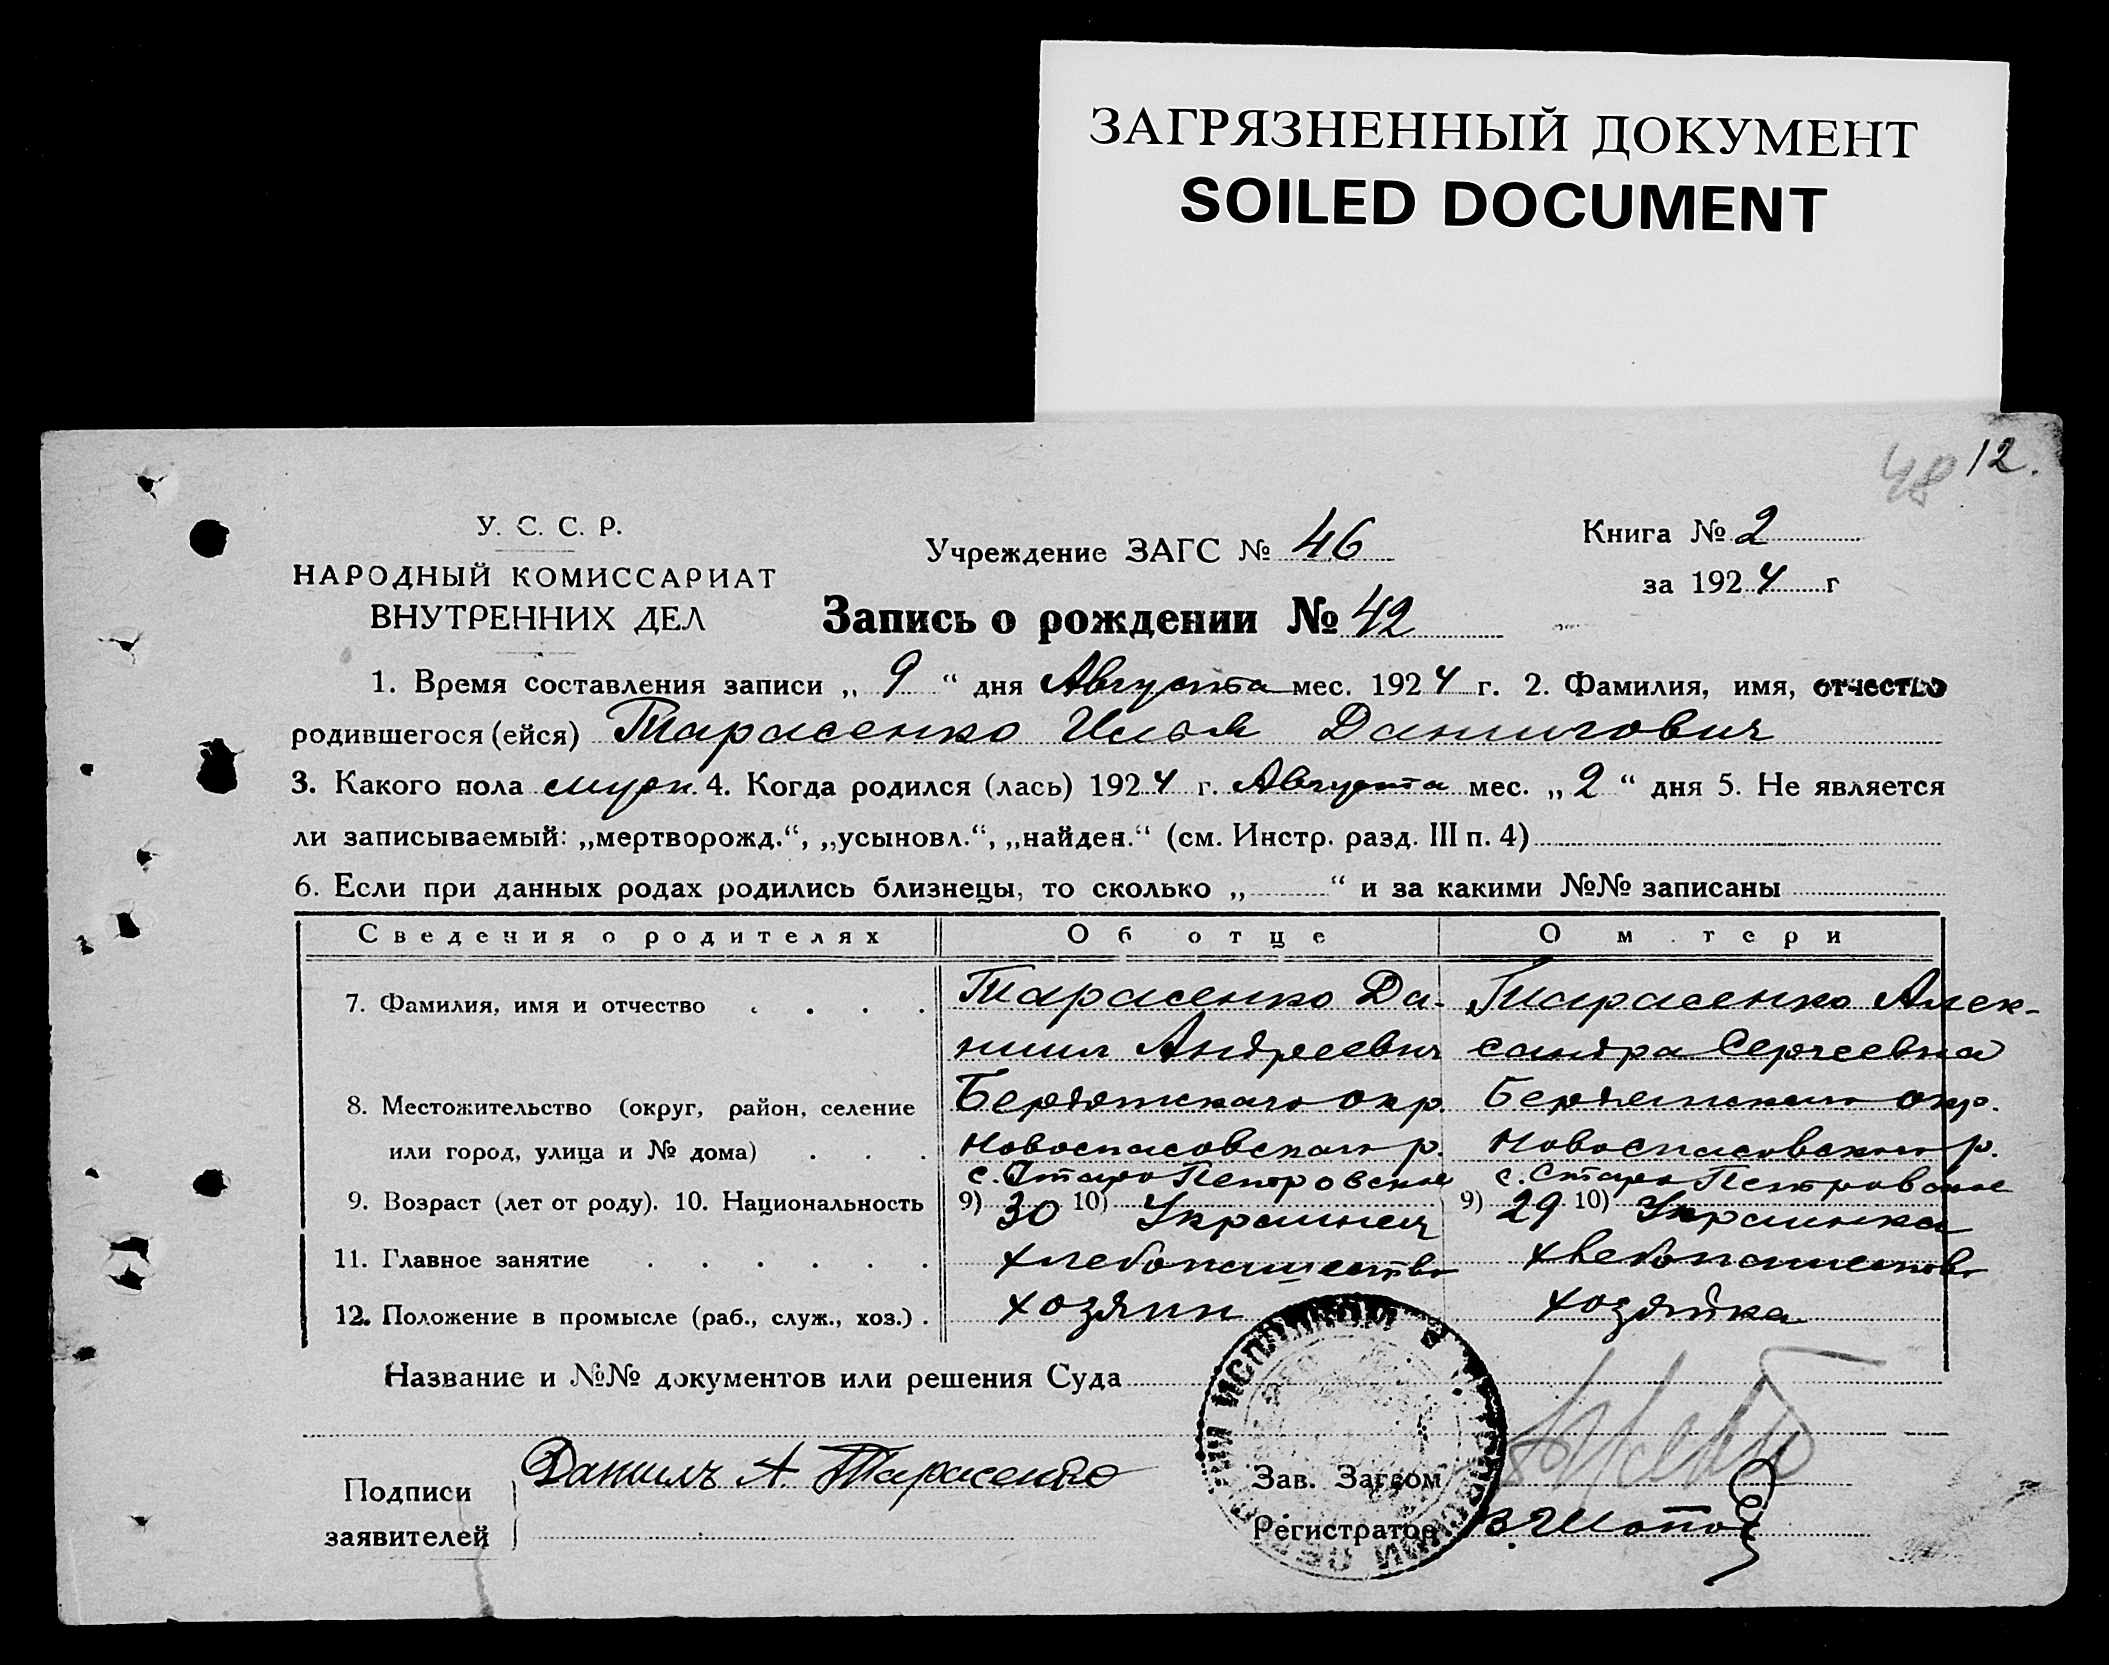 ЗАГРЯЗНЕННЫЙ ДОКУМЕНТ
SOILED DOCUMENT
48 12.
У. С. С. Р.
НАРОДНЫЙ КОМИССАРИАТ
ВНУТРЕННИХ ДЕЛ
Учреждение ЗАГС № 46
Книга № 2
за 1924 г
Запись о рождении № 42
1. Время составления записи „ 9 “ дня Августа мес. 1924 г. 2. Фамилия, имя, отчество
родившегося (ейся) Тарасенко Илья Данилович
3. Какого пола муж. 4. Когда родился (лась) 1924 г. Августа мес. „ 2 “ дня 5. Не является
ли записываемый: „мертворожд.“, „усыновл.“, „найден.“ (см. Инстр. разд. III п. 4)
6. Если при данных родах родились близнецы, то сколько „ “ и за какими №№ записаны
Сведения о родителях Об отце О м тери
7. Фамилия, имя и отчество . . . . Тарасенко Да- Тарасенко Алек-
ниил Андреевич сандра Сергеевна
8. Местожительство (округ, район, селение Бердянскаго окр. Бердянскаго окр.
или город, улица и № дома) . . . Новоспасовскаго р. Новоспасовскаго р.
с. Старо Петровское с. Старо Петровское
9. Возраст (лет от роду). 10. Национальность 9) 30 10) Украинец 9) 29 10) Украинка
11. Главное занятие . . . . . . хлебопашество хлебопашество
12. Положение в промысле (раб., служ., хоз.) . хозяин хозяйка
Название и №№ документов или решения Суда
Подписи
заявителей
Данилъ А. Тарасенко
Зав. Загсом
Регистратор
ИСПОЛКОМ